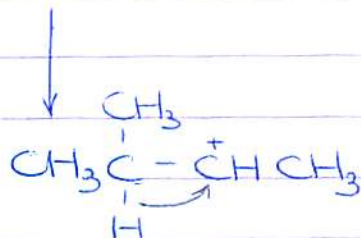 CH₃
CH₃C - C⁺H CH₃
H